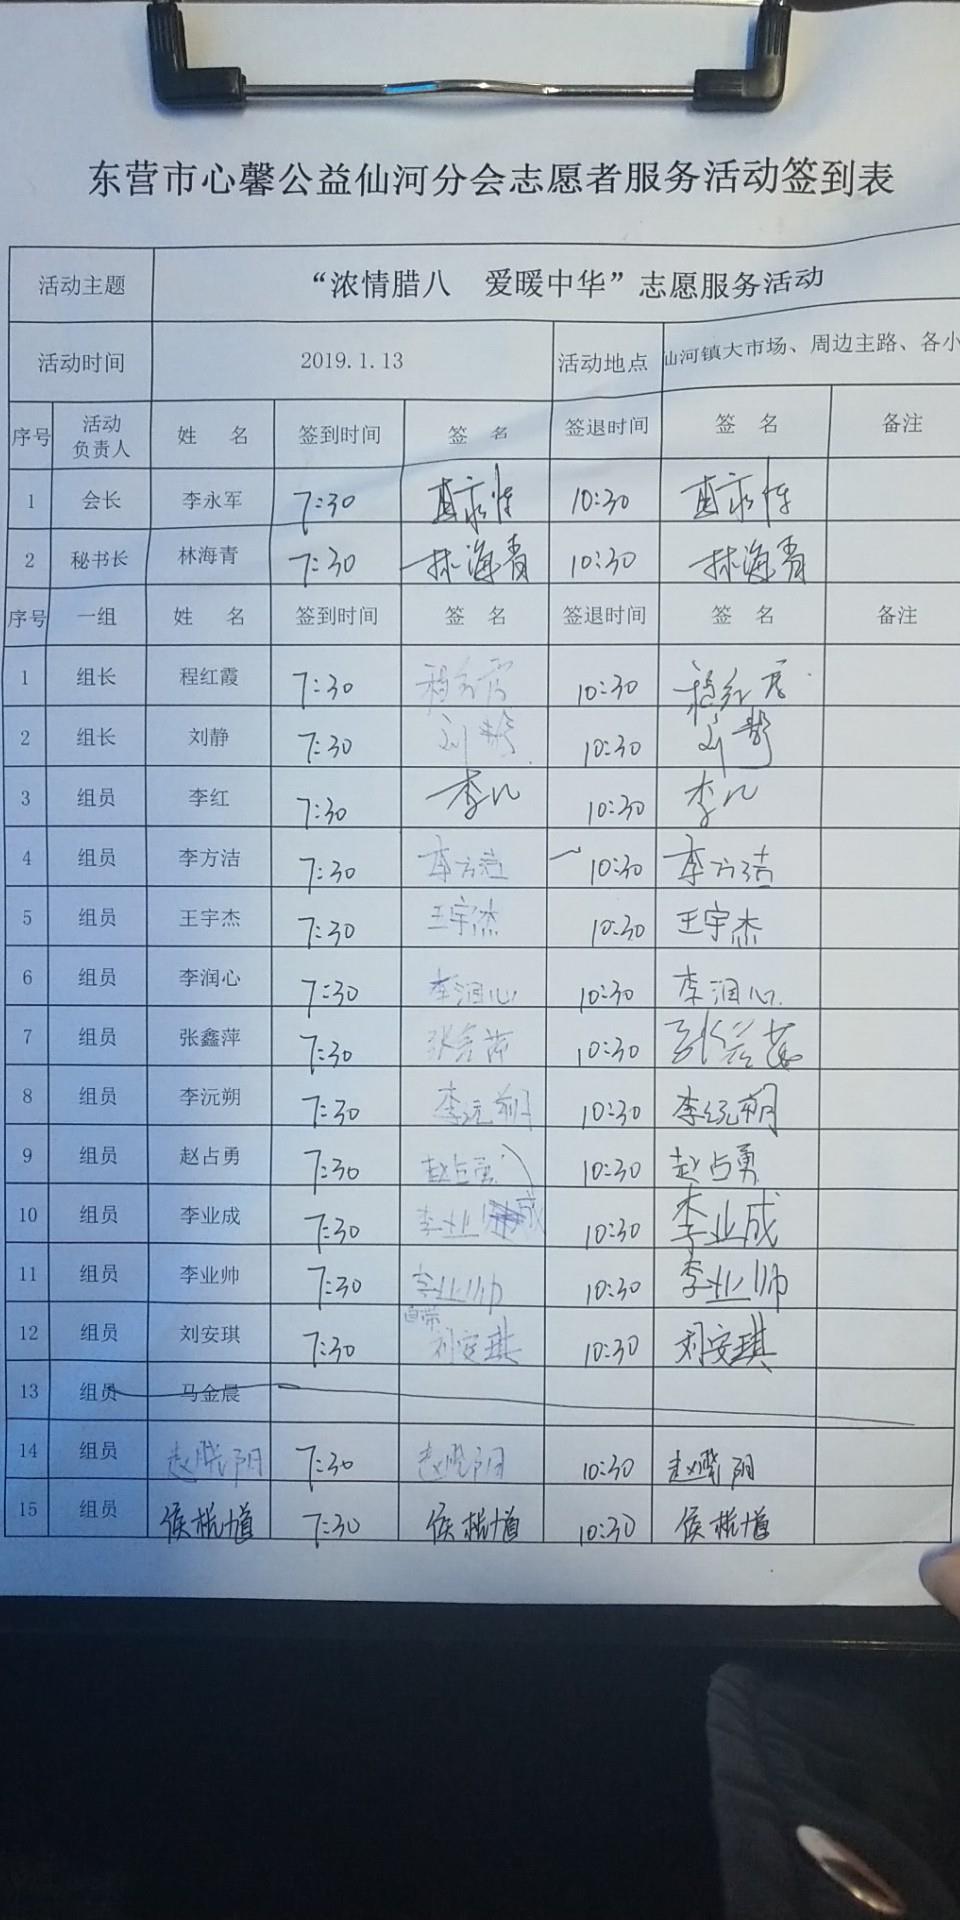 东营市心馨公益仙河分会志愿者服务活动签到表
活动主题 “浓情腊八 爱暖中华”志愿服务活动
活动时间 2019.1.13 活动地点 仙河镇大市场、周边主路、各小
序号 活动负责人 姓 名 签到时间 签 名 签退时间 签 名 备注
1 会长 李永军 7:30 10:30
2 秘书长 林海青 7:30 林海青 10:30 林海青
序号 一组 姓 名 签到时间 签 名 签退时间 签 名 备注
1 组长 程红霞 7:30 程红霞 10:30 程红霞
2 组长 刘静 7:30 刘静 10:30 刘静
3 组员 李红 7:30 李红 10:30 李红
4 组员 李方洁 7:30 李方洁 10:30 李方洁
5 组员 王宇杰 7:30 王宇杰 10:30 王宇杰
6 组员 李润心 7:30 李润心 10:30 李润心
7 组员 张鑫萍 7:30 张鑫萍 10:30 张鑫萍
8 组员 李沅朔 7:30 李沅朔 10:30 李沅朔
9 组员 赵占勇 7:30 赵占勇 10:30 赵占勇
10 组员 李业成 7:30 李业成 10:30 李业成
11 组员 李业帅 7:30 李业帅 10:30 李业帅
12 组员 刘安琪 7:30 刘安琪 10:30 刘安琪
13 组员 马金晨
14 组员 赵晓阳 7:30 赵晓阳 10:30 赵晓阳
15 组员 7:30 10:30